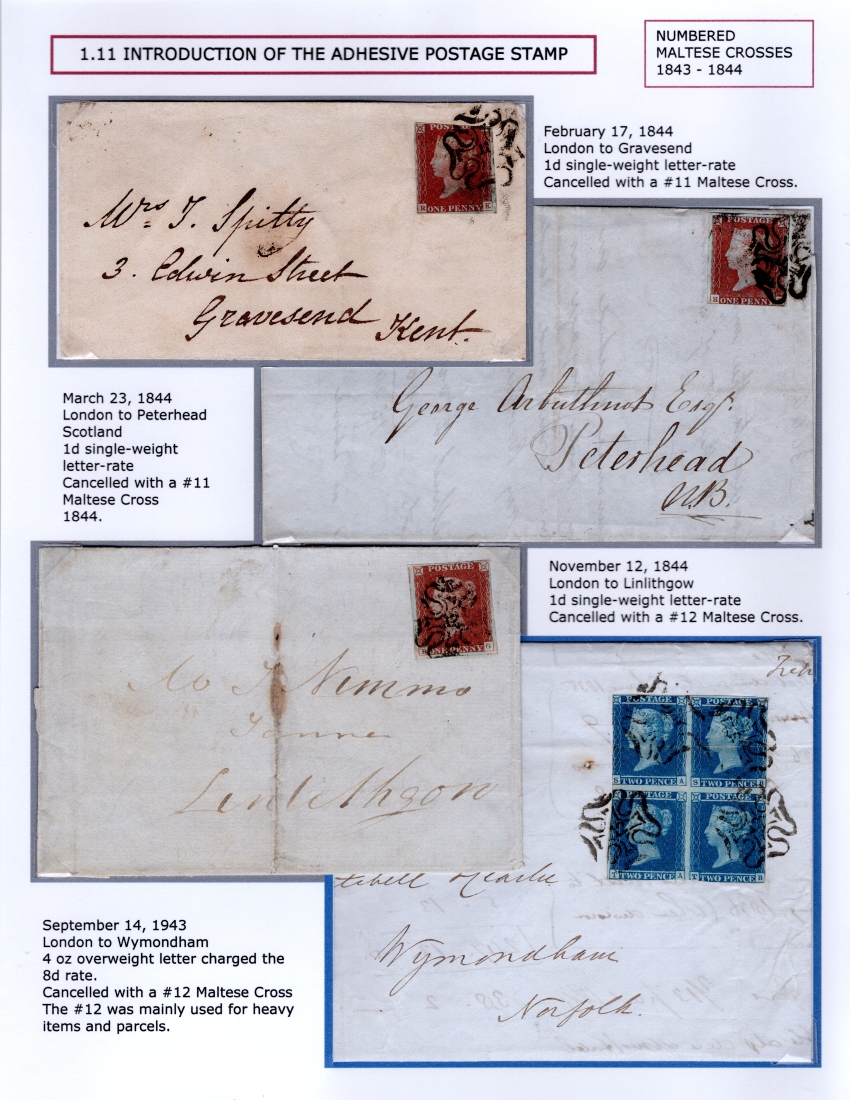 1.11 INTRODUCTION OF THE ADHESIVE POSTAGE STAMP
NUMBERED
MALTESE CROSSES
1843 - 1844
February 17, 1844
London to Gravesend
1d single-weight letter-rate
Cancelled with a #11 Maltese Cross.
ONE PENNY
Mrs J. Spitty
3. Edwin Street
Gravesend
Kent.
March 23, 1844
London to Peterhead
Scotland
1d single-weight
letter-rate
Cancelled with a #11
Maltese Cross
1844.
POSTAGE
B ONE PENNY
George Arbuthnot Esqr.
Peterhead
N.B.
November 12, 1844
London to Linlithgow
1d single-weight letter-rate
Cancelled with a #12 Maltese Cross.
POSTAGE
ONE PENNY G
J Nimmo
Tanner
Linlithgow
September 14, 1943
London to Wymondham
4 oz overweight letter charged the
8d rate.
Cancelled with a #12 Maltese Cross
The #12 was mainly used for heavy
items and parcels.
POSTAGE POSTAGE
S TWO PENCE A S TWO PENCE B
POSTAGE POSTAGE
T TWO PENCE A T TWO PENCE B
Wymondham
Norfolk.